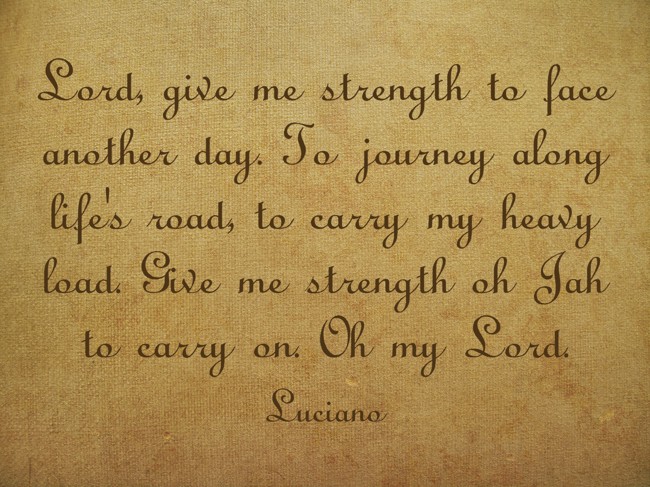 Lord, give me strength to face
another day. To journey along
life's road, to carry my heavy
load. Give me strength oh Jah
to carry on. Oh my Lord.
Luciano